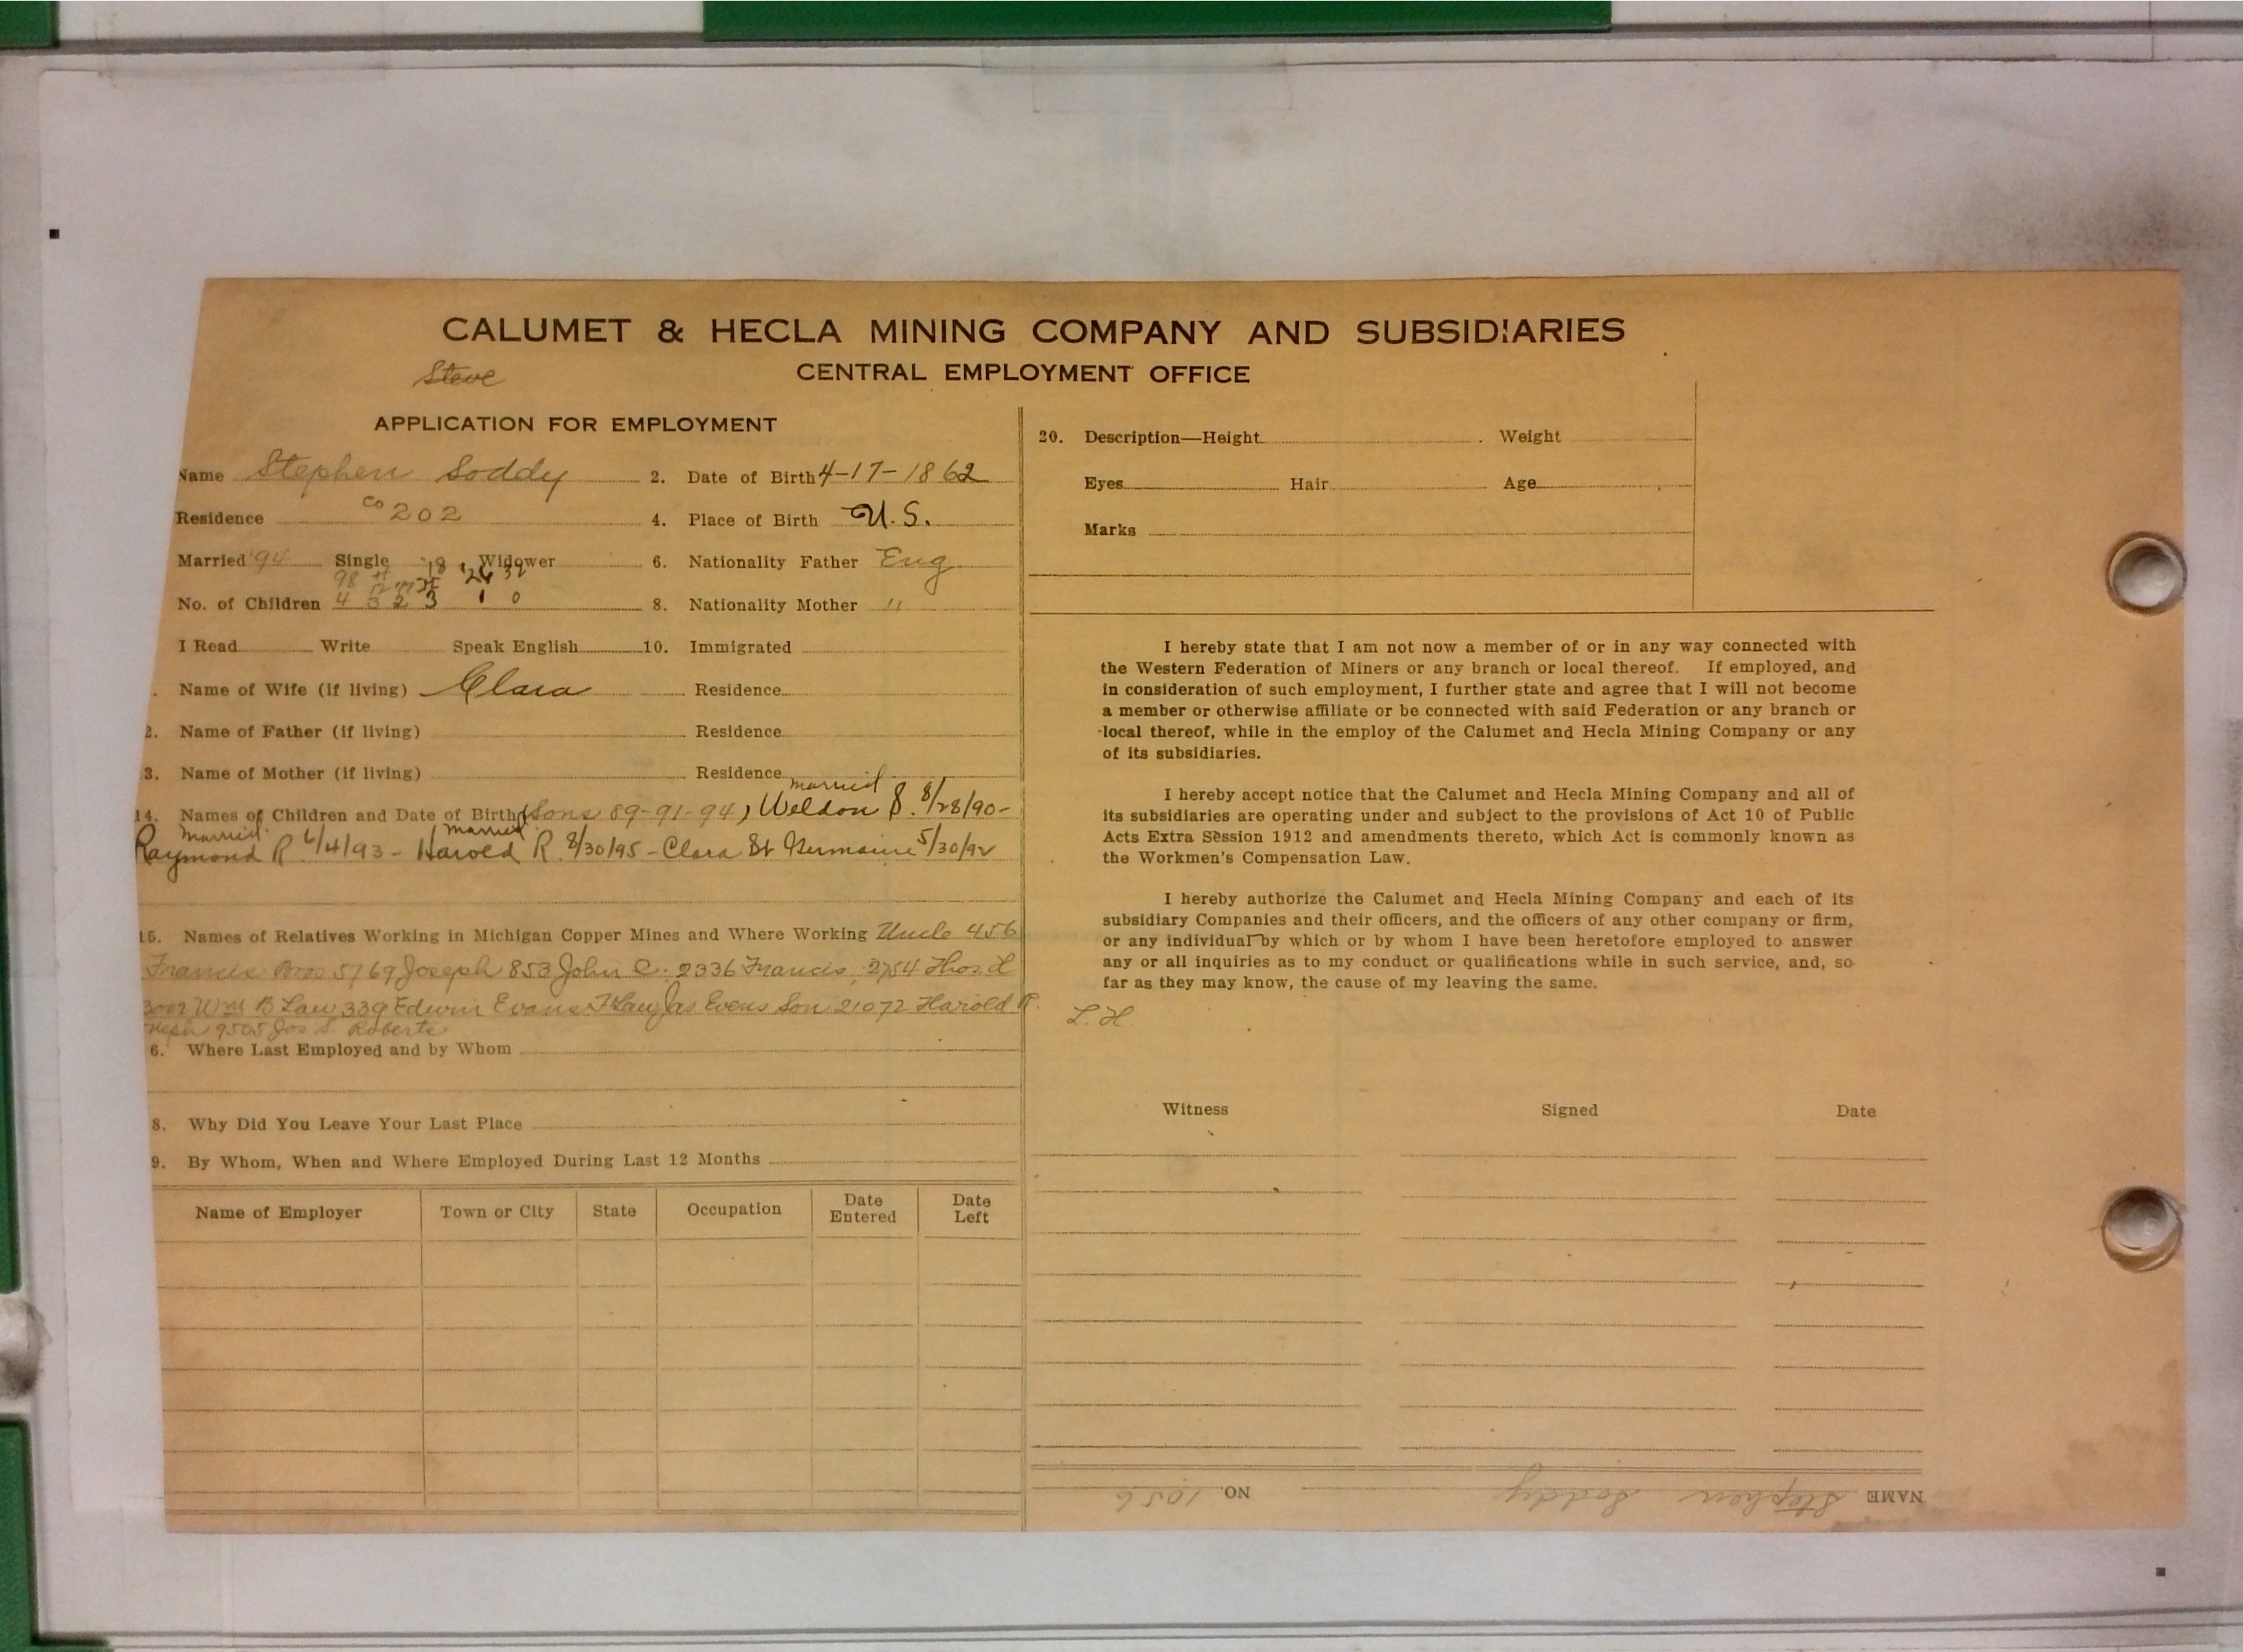 CALUMET & HECLA MINING COMPANY AND SUBSIDIARIES
Steve
CENTRAL EMPLOYMENT OFFICE
APPLICATION FOR EMPLOYMENT
Name Stephen Soddy 2. Date of Birth 4-17-1862
Residence Co 202 4. Place of Birth U.S.
Married '94 Single '18 '26 32 Widower 6. Nationality Father Eng
98
No. of Children 4 3 2 3 1 0 8. Nationality Mother "
I Read Write Speak English 10. Immigrated
. Name of Wife (if living) Clara Residence
2. Name of Father (if living) Residence
3. Name of Mother (if living) Residence
married
14. Names of Children and Date of Birth (Sons 89-91-94) Weldon S. 8/28/90-
married married
Raymond R 6/4/93 - Harold R. 8/30/95 - Clara St Germaine 5/30/92
15. Names of Relatives Working in Michigan Copper Mines and Where Working Uncle 456
Francis Bros 5769 Joseph 853 John C. 2336 Francis, 2754 Thos. H
3002 Wm B Law 339 Edwin Evans Law Jas Evens Son 21072 Harold R.
Neph 9505 Jos S. Roberts
6. Where Last Employed and by Whom
8. Why Did You Leave Your Last Place
9. By Whom, When and Where Employed During Last 12 Months
Name of Employer Town or City State Occupation Date Entered Date Left
20. Description—Height Weight
Eyes Hair Age
Marks
I hereby state that I am not now a member of or in any way connected with
the Western Federation of Miners or any branch or local thereof. If employed, and
in consideration of such employment, I further state and agree that I will not become
a member or otherwise affiliate or be connected with said Federation or any branch or
local thereof, while in the employ of the Calumet and Hecla Mining Company or any
of its subsidiaries.
I hereby accept notice that the Calumet and Hecla Mining Company and all of
its subsidiaries are operating under and subject to the provisions of Act 10 of Public
Acts Extra Session 1912 and amendments thereto, which Act is commonly known as
the Workmen's Compensation Law.
I hereby authorize the Calumet and Hecla Mining Company and each of its
subsidiary Companies and their officers, and the officers of any other company or firm,
or any individual by which or by whom I have been heretofore employed to answer
any or all inquiries as to my conduct or qualifications while in such service, and, so
far as they may know, the cause of my leaving the same.
L.H.
Witness Signed Date
NAME Stephen Soddy NO. 1056